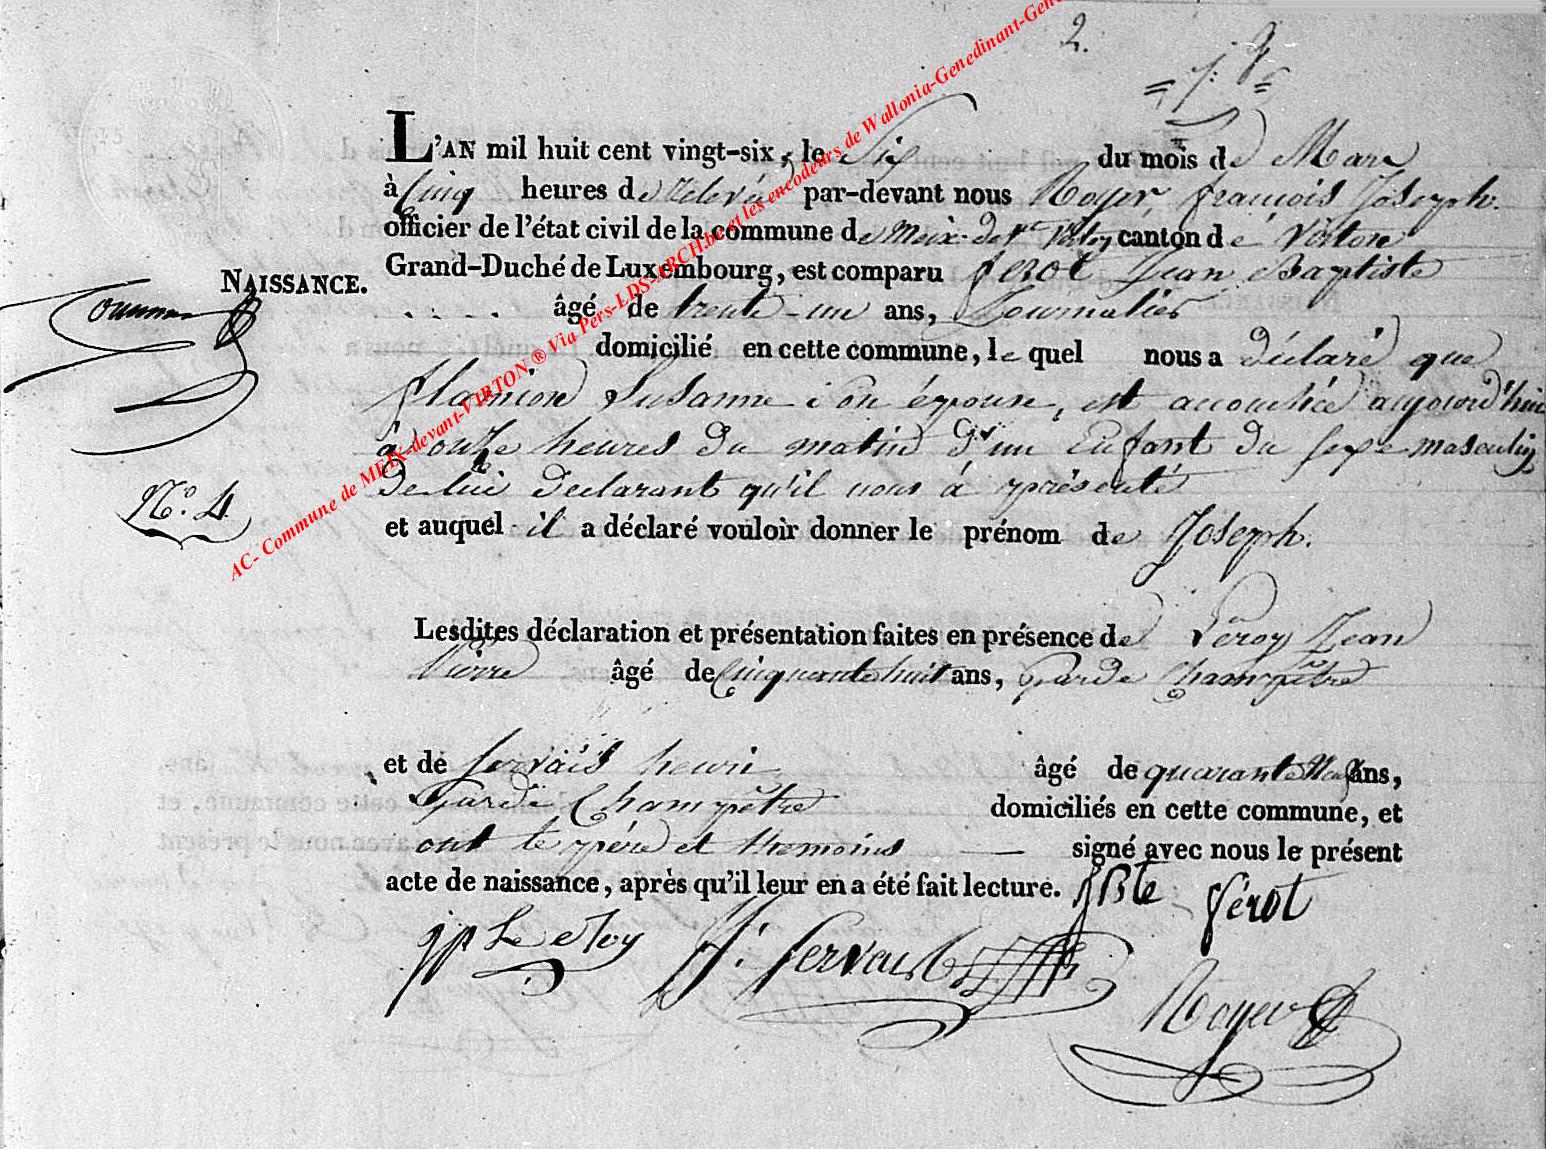 2.
AC- Commune de MEIX-devant-VIRTON ® Via Pers-LDS-ARCH.be et les encodeurs de Wallonia-Genedinant-Gene
L'AN mil huit cent vingt-six, le Six du mois de Mars
à Cinq heures de relevée par-devant nous Royer françois Joseph.
officier de l'état civil de la commune de Meix-devt Virton canton de Virton
Grand-Duché de Luxembourg, est comparu ferot Jean Baptiste
NAISSANCE.
âgé de trente-un ans, Journalier
domicilié en cette commune, lequel nous a déclaré que
Susanne son épouse, est accouchée aujourd'hui
à onze heures du matin d'un Enfant du sexe masculin
de lui déclarant qu'il nous à présenté
N°. 4
et auquel il a déclaré vouloir donner le prénom de Joseph.
Lesdites déclaration et présentation faites en présence de Léroy Jean
Pierre âgé de Cinquante huit ans, Garde Champêtre
et de Servais henri âgé de quarante Neuf ans,
Garde Champêtre domiciliés en cette commune, et
ont le père et témoins signé avec nous le présent
acte de naissance, après qu'il leur en a été fait lecture. JBte férot
jp Leroy h. Servais
Royer